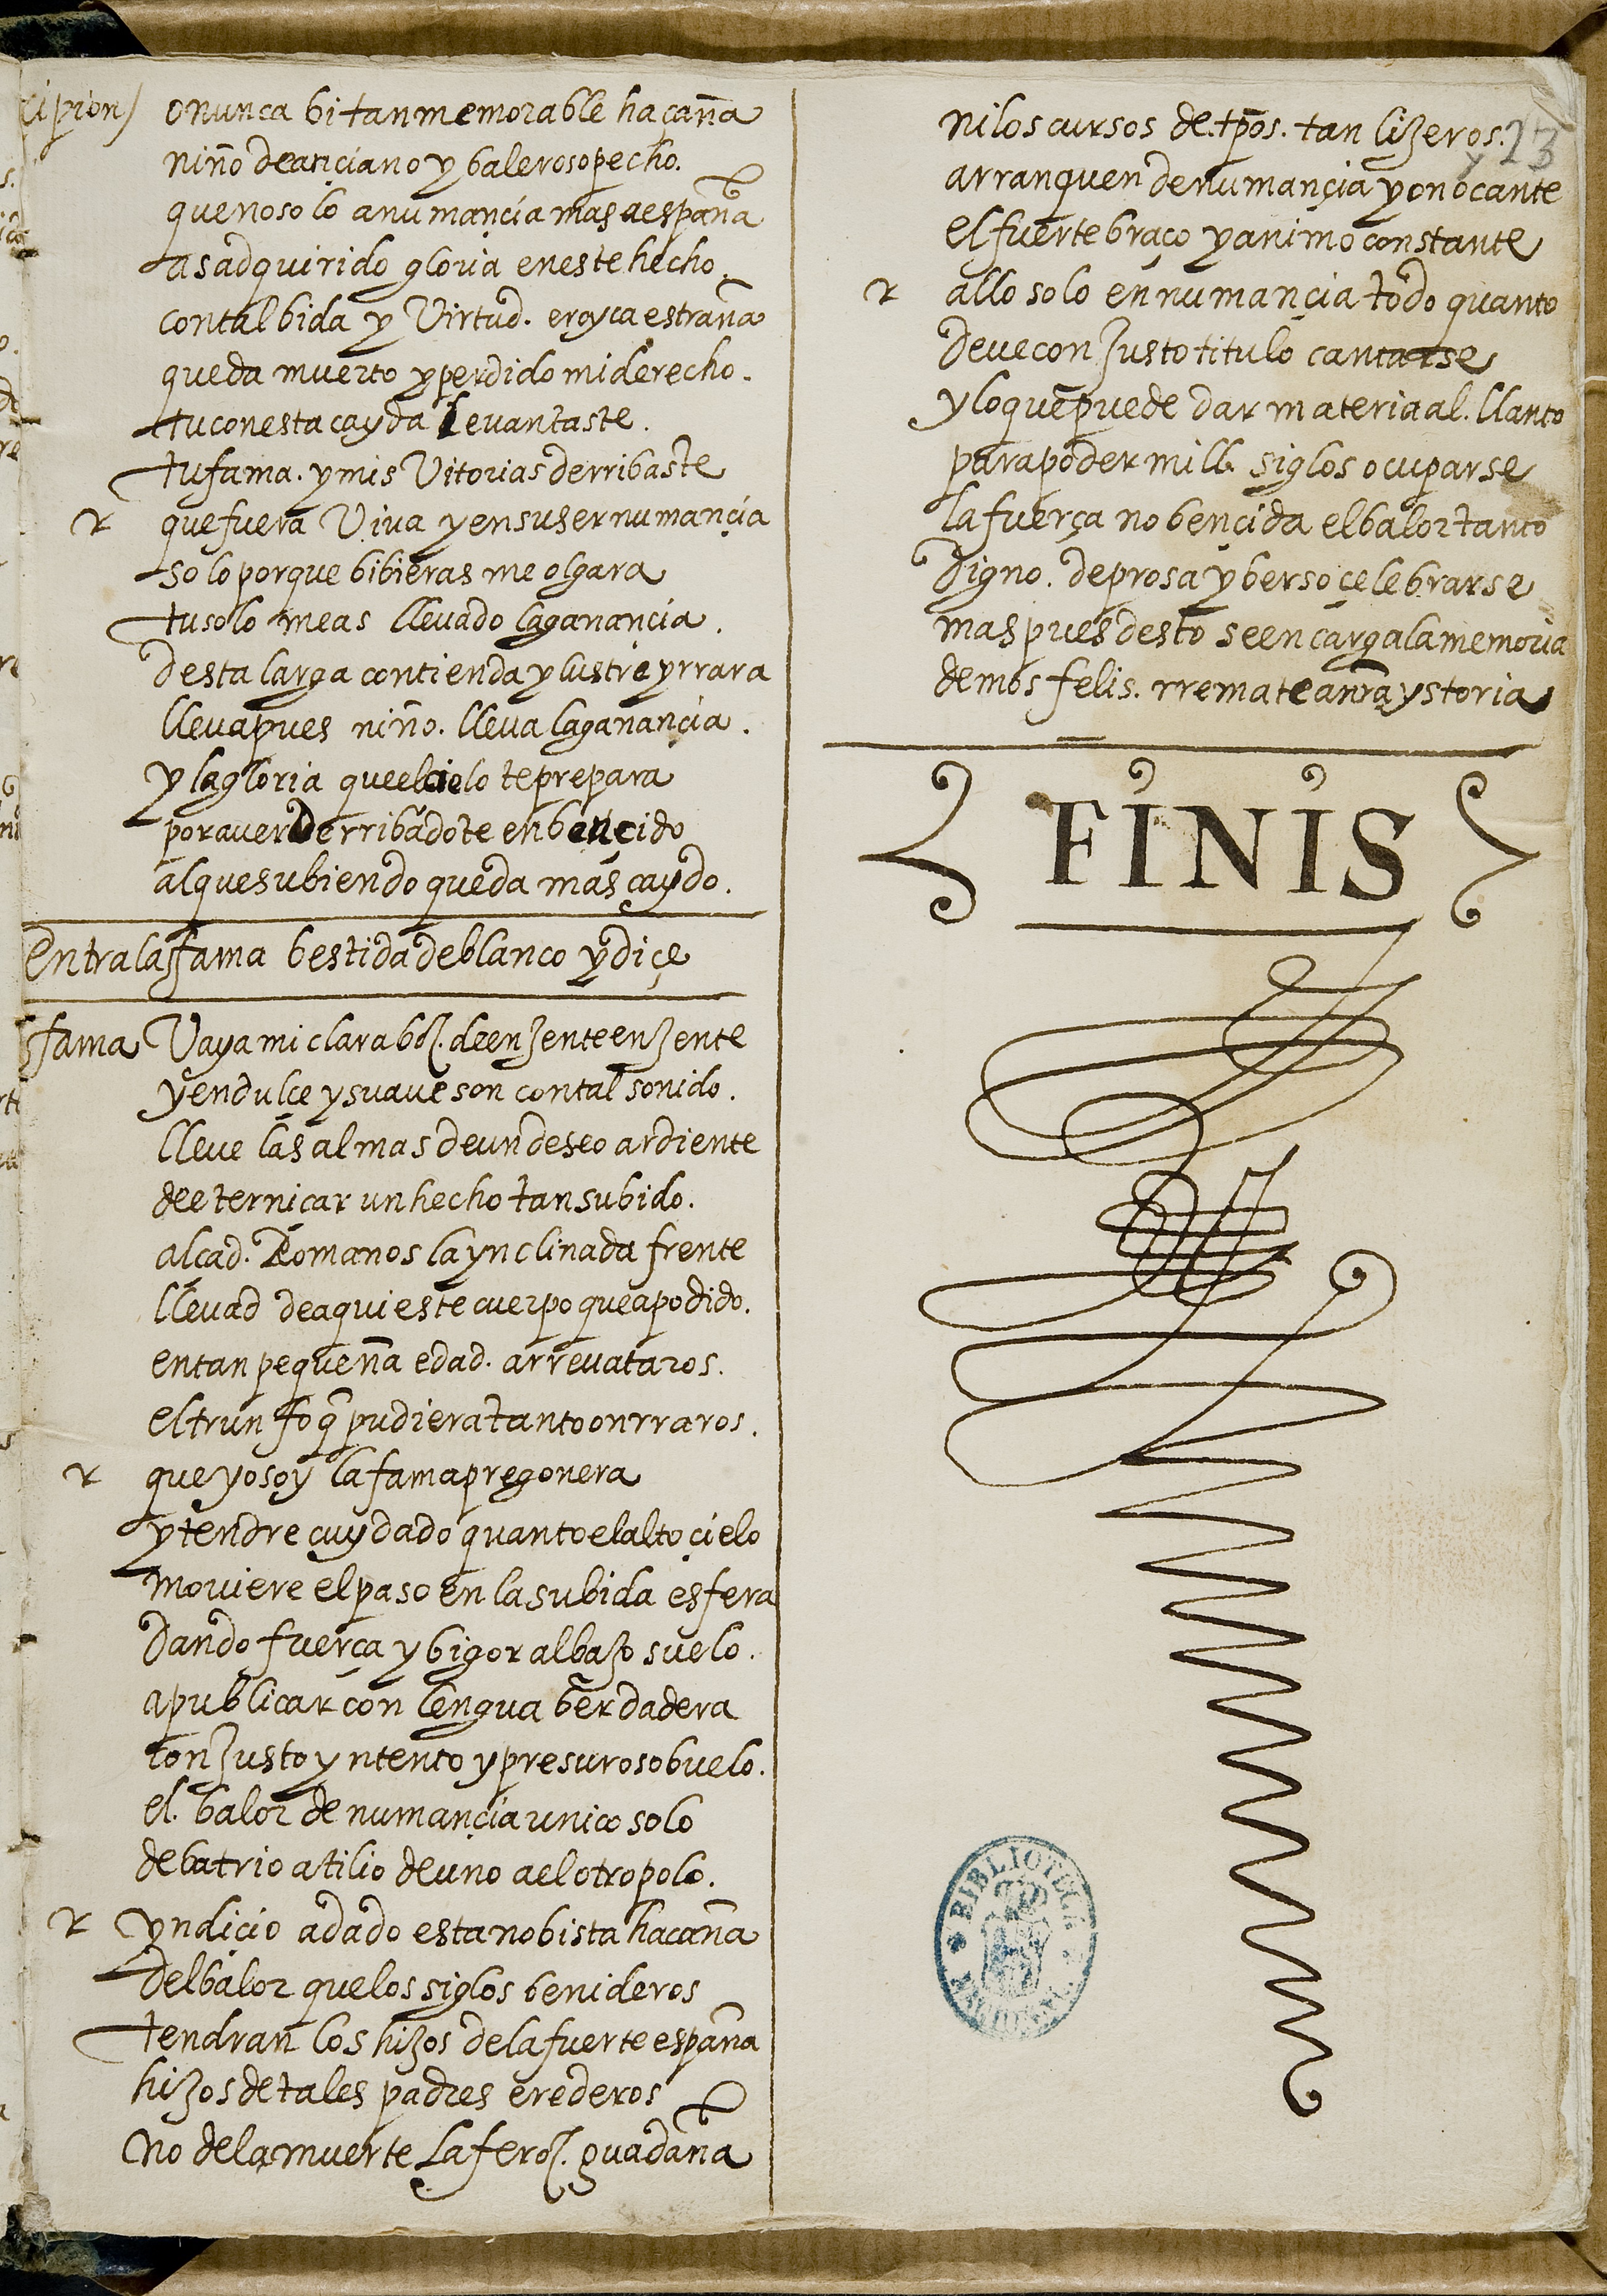 cipion) o nunca bi tan memorable haçaña
niño de ançiano y baleroso pecho.
que no solo a numançia mas a españa
as adquirido gloria en este hecho.
con tal bida y Virtud. eroyca estraña
queda muerto y perdido mi derecho.
tu con esta cayda levantaste.
tu fama. y mis Vitorias derribaste
r que fuera Viva y en su ser numançia
solo porque bibieras me olgara
tu solo me as llevado la ganançia.
desta larga contienda ylustre y rrara
lleva pues niño. lleva la ganançia.
y la gloria que el cielo te prepara
por aver derribadote en bencido
al que subiendo queda mas çaydo.
Entra la ffama bestida de blanco y diçe
ffama Vaya mi clara boz. de en jente en jente
y en dulçe y suave son con tal sonido.
lleve las almas de un deseo ardiente
de eterniçar un hecho tan subido.
alçad. Romanos la ynclinada frente
llevad de aqui este cuerpo que a podido.
en tan pequeña edad. arrevataros.
el trunfo q̃ pudiera tanto onrraros.
r que yo soy la fama pregonera
y tendre cuydado quanto el alto çielo
moviere el paso en la subida esfera
dando fuerça y bigor al bajo suelo.
a publicar con lengua berdadera
con justo yntento y presuroso buelo.
el. balor de numançia unico solo
de batrio a tilio de uno a el otro polo.
r yndiçio a dado esta no bista hacaña
del balor que los siglos benideros
tendran los hijos de la fuerte españa
hijos de tales padres erederos
no de la muerte la feroz. guadaña
ni los cursos de. tp̄os. tan lijeros. 23
arranquen de numançia y o no cante
el fuerte braço y animo constante
r allo solo en numançia todo quanto
deve con justo titulo cantarse
y lo que puede dar materia al. llanto
para poder mill siglos ocuparse
la fuerça no bençida el balor tanto
digno. de prosa y berso çelebrarse
mas pues desto se encarga la memoria
demos felis. rremate a nr̃a ystoria
FINIS
BIBLIOTECA NACIONAL